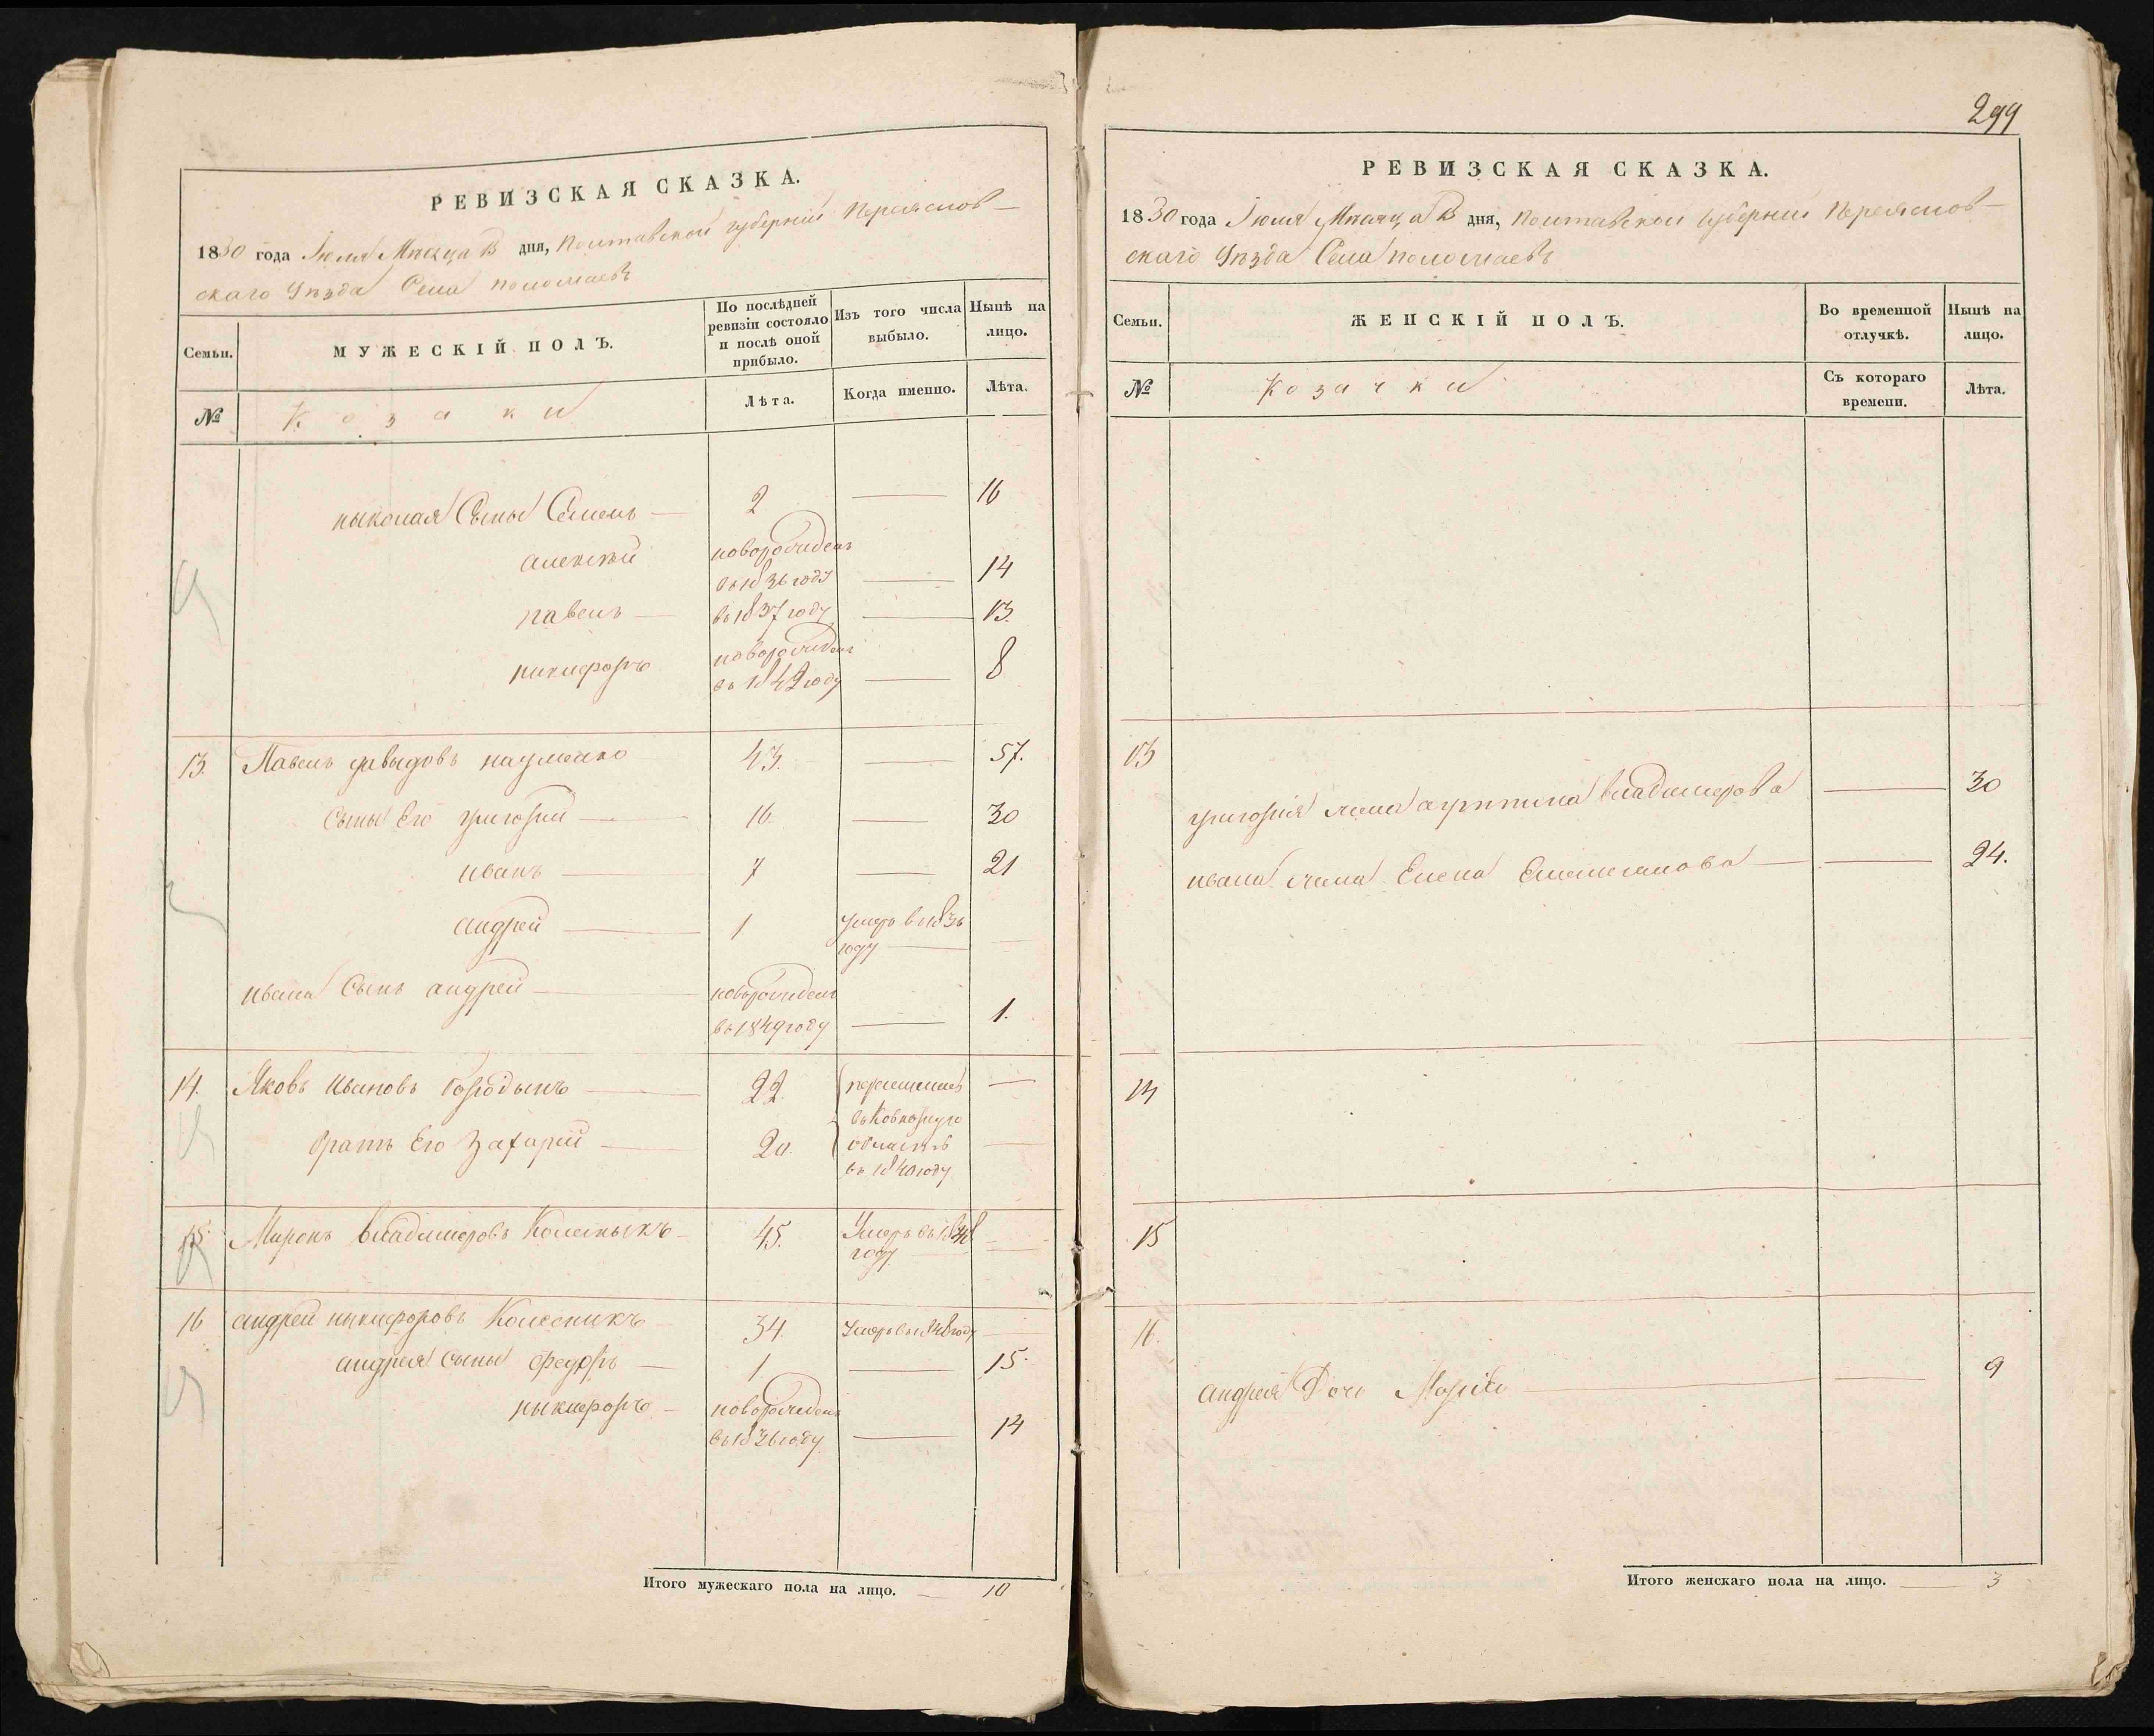 РЕВИЗСКАЯ СКАЗКА.
1850 года Июля Мѣсяца 13 дня, Полтавской губерніи Переяслов-
скаго Уѣзда Села
Семьи.
МУЖЕСКІЙ ПОЛЪ.
По послѣдней ревизіи состояло и послѣ оной прибыло.
Изъ того числа выбыло.
Нынѣ на лицо.
№
Козаки
Лѣта.
Когда именно.
Лѣта.
ныколая Сыны Семенъ 2 — 16
алексѣй новорожденъ
въ 1836 году — 14
павелъ — въ 1837 году — 13.
никифоръ новорожденъ
въ 1842 году — 8
13. Павелъ давыдовъ науменко 43. — 57.
Сыны Его григорій — 16. — 30
иванъ — 7 — 21
андрей — 1 умеръ въ 1836
году — —
ивана Сынъ андрей — новорожденъ
въ 1849 году — 1.
14. Яковъ Ивановъ Бородынъ — 22. переселились —
братъ Его Захарій — 20. въ Кавказскую
область —
въ 1840 году
15. Миронъ владимеровъ Колесныкъ — 45. Умеръ въ 1848
году —
16 андрей ныкифоровъ Колесникъ 34. Умеръ въ 1848 году —
андрея Сыны федоръ — 1 — 15.
ныкифоръ — новорожденъ
въ 1836 году — 14
Итого мужескаго пола на лицо. — 10
299
РЕВИЗСКАЯ СКАЗКА.
1850 года Июля Мѣсяца 13 дня, Полтавской Губерніи Переяслов-
скаго Уѣзда Села
Семьи.
ЖЕНСКІЙ ПОЛЪ.
Во временной отлучкѣ.
Нынѣ на лицо.
№
Козачки
Съ котораго времени.
Лѣта.
13
григорія жена агрипина владимерова — 30
ивана жена Елена Емельянова — — 24.
14
15
16.
андрея Дочь Марія — — 9
Итого женскаго пола на лицо. — 3